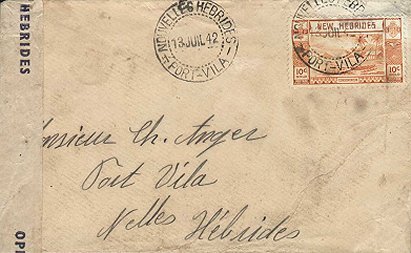 HEBRIDES
OP
NOUVELLES HEBRIDES
13 JUIL 42
PORT-VILA
NEW HEBRIDES
10c
10c
13 JUIL
PORT-VILA
Monsieur Ch. Anger
Port Vila
Nelles Hébrides